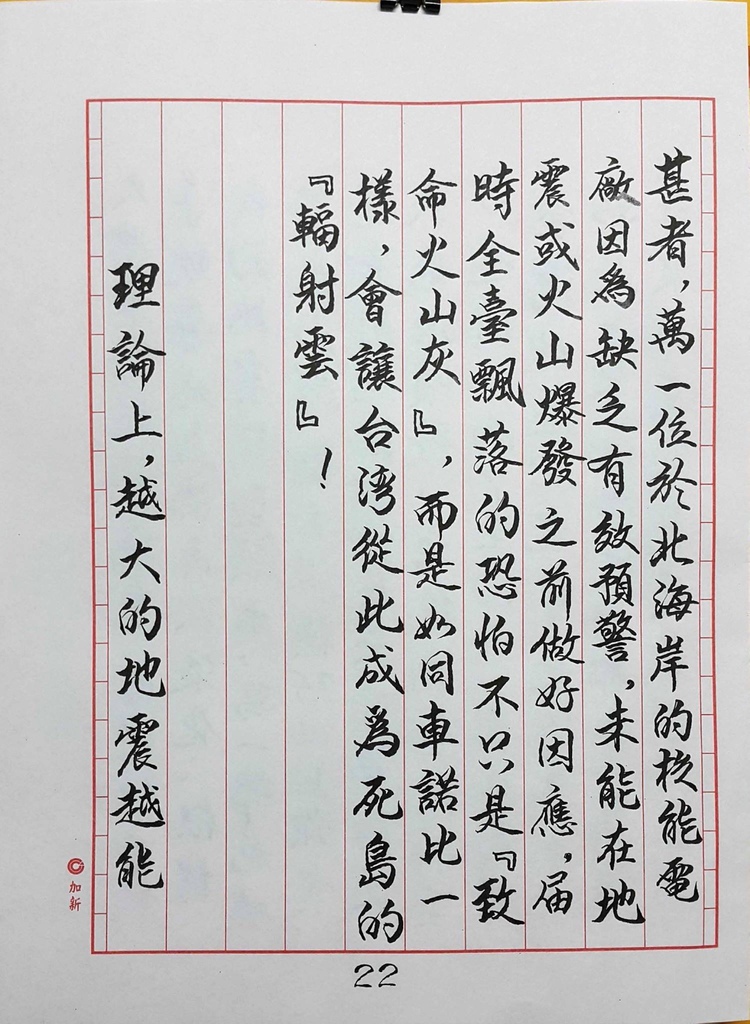 甚者，萬一位於北海岸的核能電
廠因為缺乏有效預警，未能在地
震或火山爆發之前做好因應，届
時全臺飄落的恐怕不只是『致
命火山灰』，而是如同車諾比一
樣，會讓台湾從此成爲死島的
『輻射雲』！
理論上，越大的地震越能
22
加新